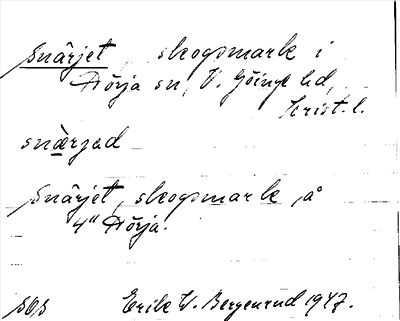 Snärjet, skogsmark i
Nörja sn, V. Göinge hd,
Krist. l.
snärjad
Snärjet, skogsmark å
4" Nörja.
Erik W. Bergenrud 1947.